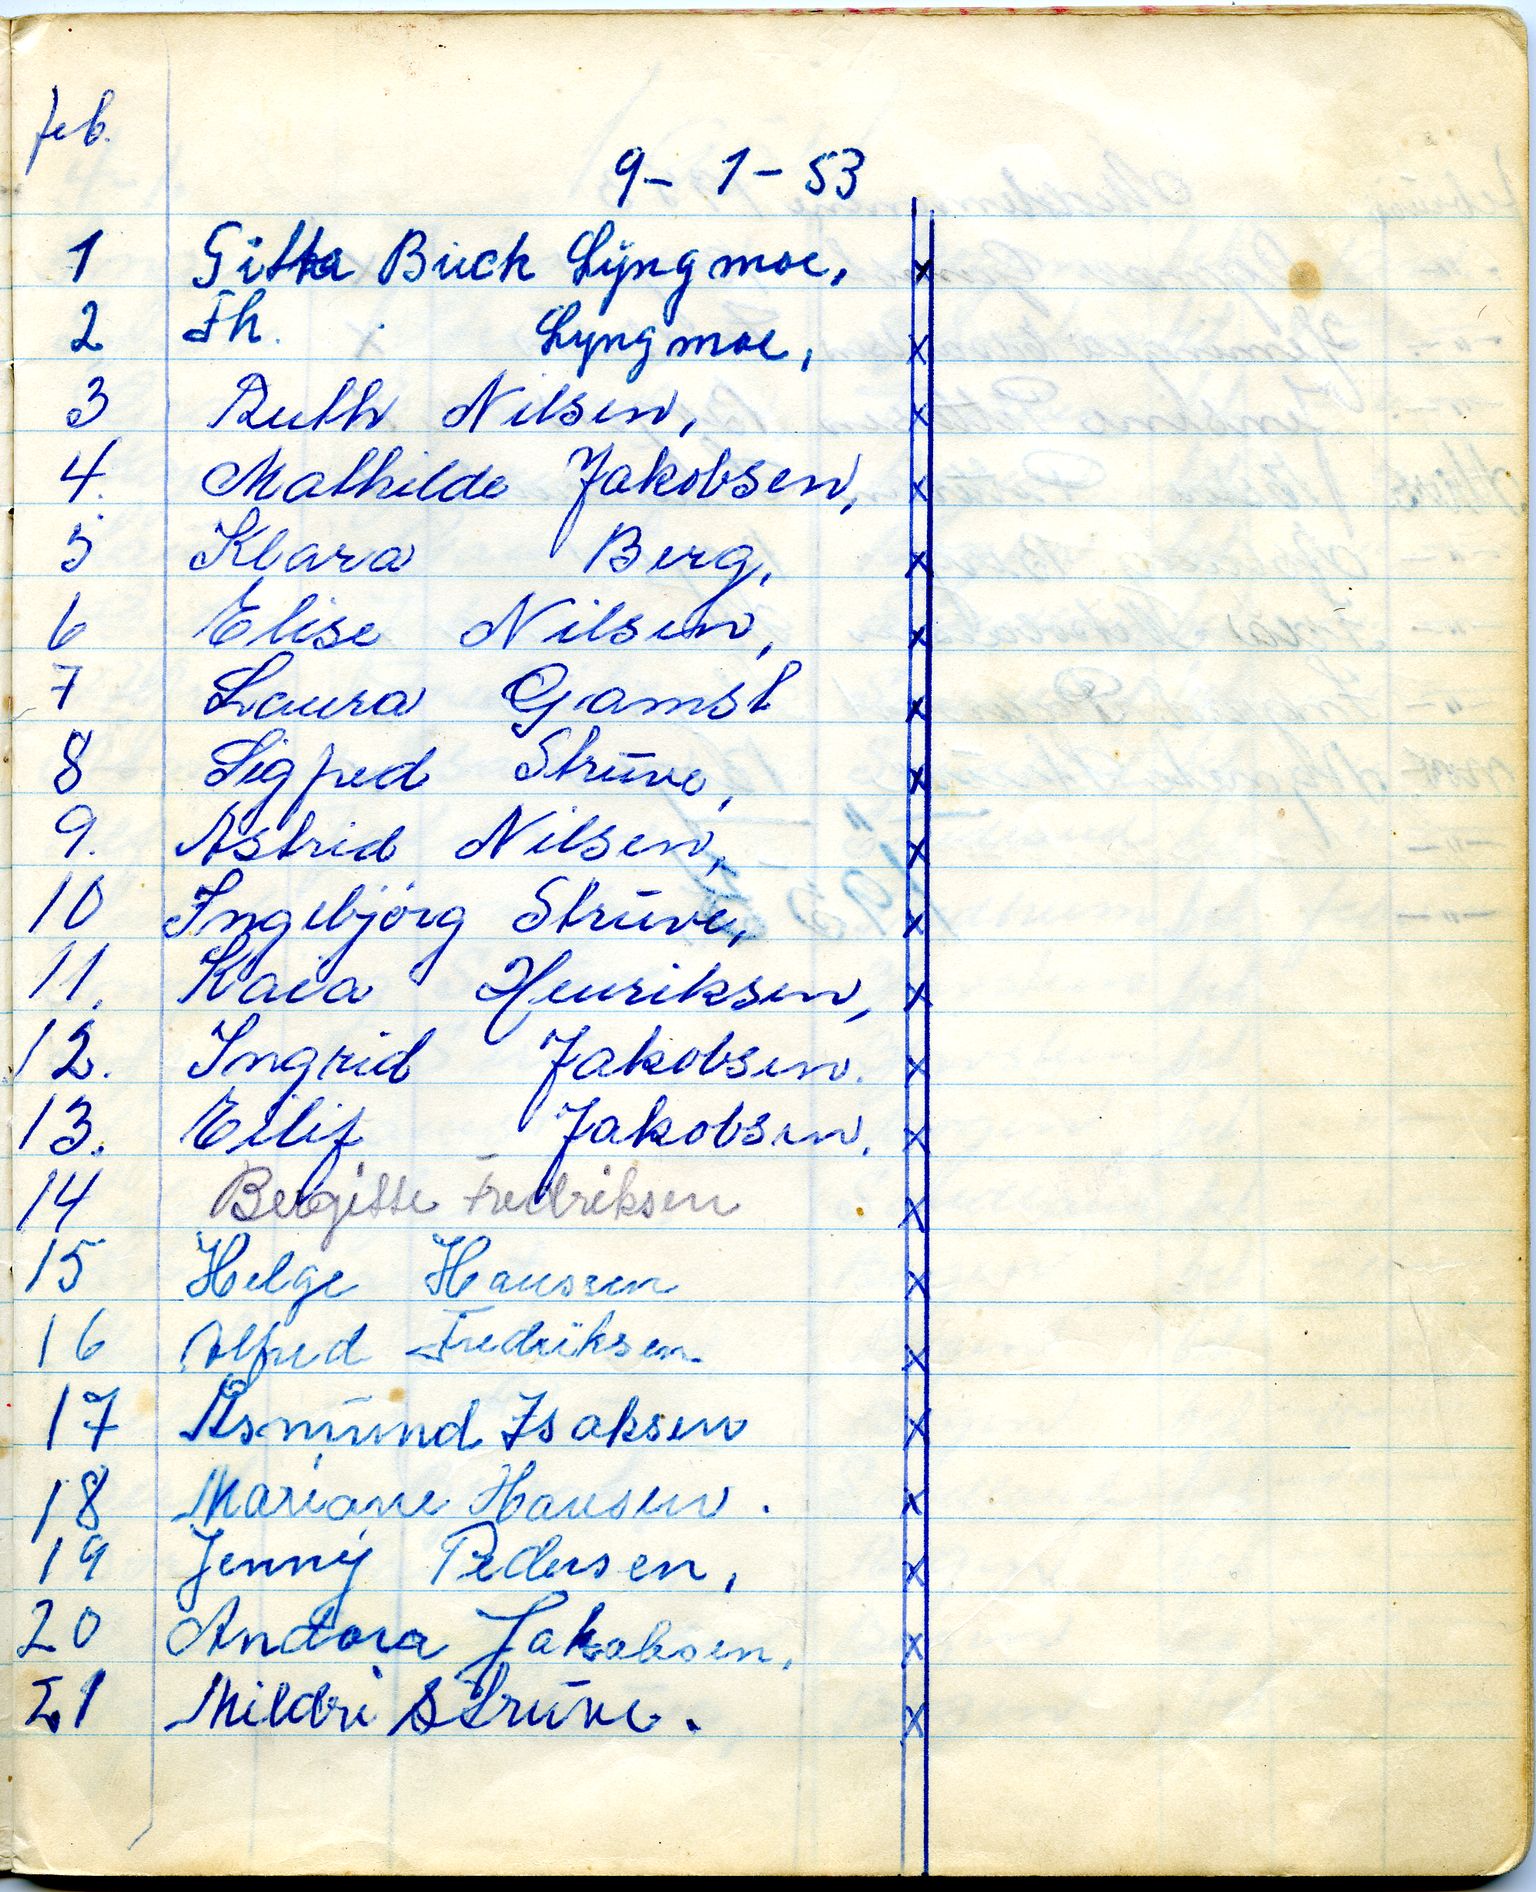 feb.
9 - 1 - 53
1 Gitta Buck Lyngmoe, x
2 Th. Lyngmoe, x
3 Ruth Nilsen, x
4. Mathilde Jakobsen, x
5 Klara Berg, x
6 Elise Nilsen, x
7 Laura Gamst x
8 Sigfred Strūve, x
9. Astrid Nilsen, x
10 Ingebjørg Strūve, x
11. Kaia Henriksen, x
12. Ingrid Jakobsen. x
13. Eilif Jakobsen, x
14 Bergitte Fredriksen x
15 Helge Hansen x
16 Alfred Fredriksen. x
17 Åsmūnd Isaksen x
18 Mariane Hansen. x
19 Jenny Pedersen, x
20 Andora Jakobsen, x
21 Mildri Strūve. x